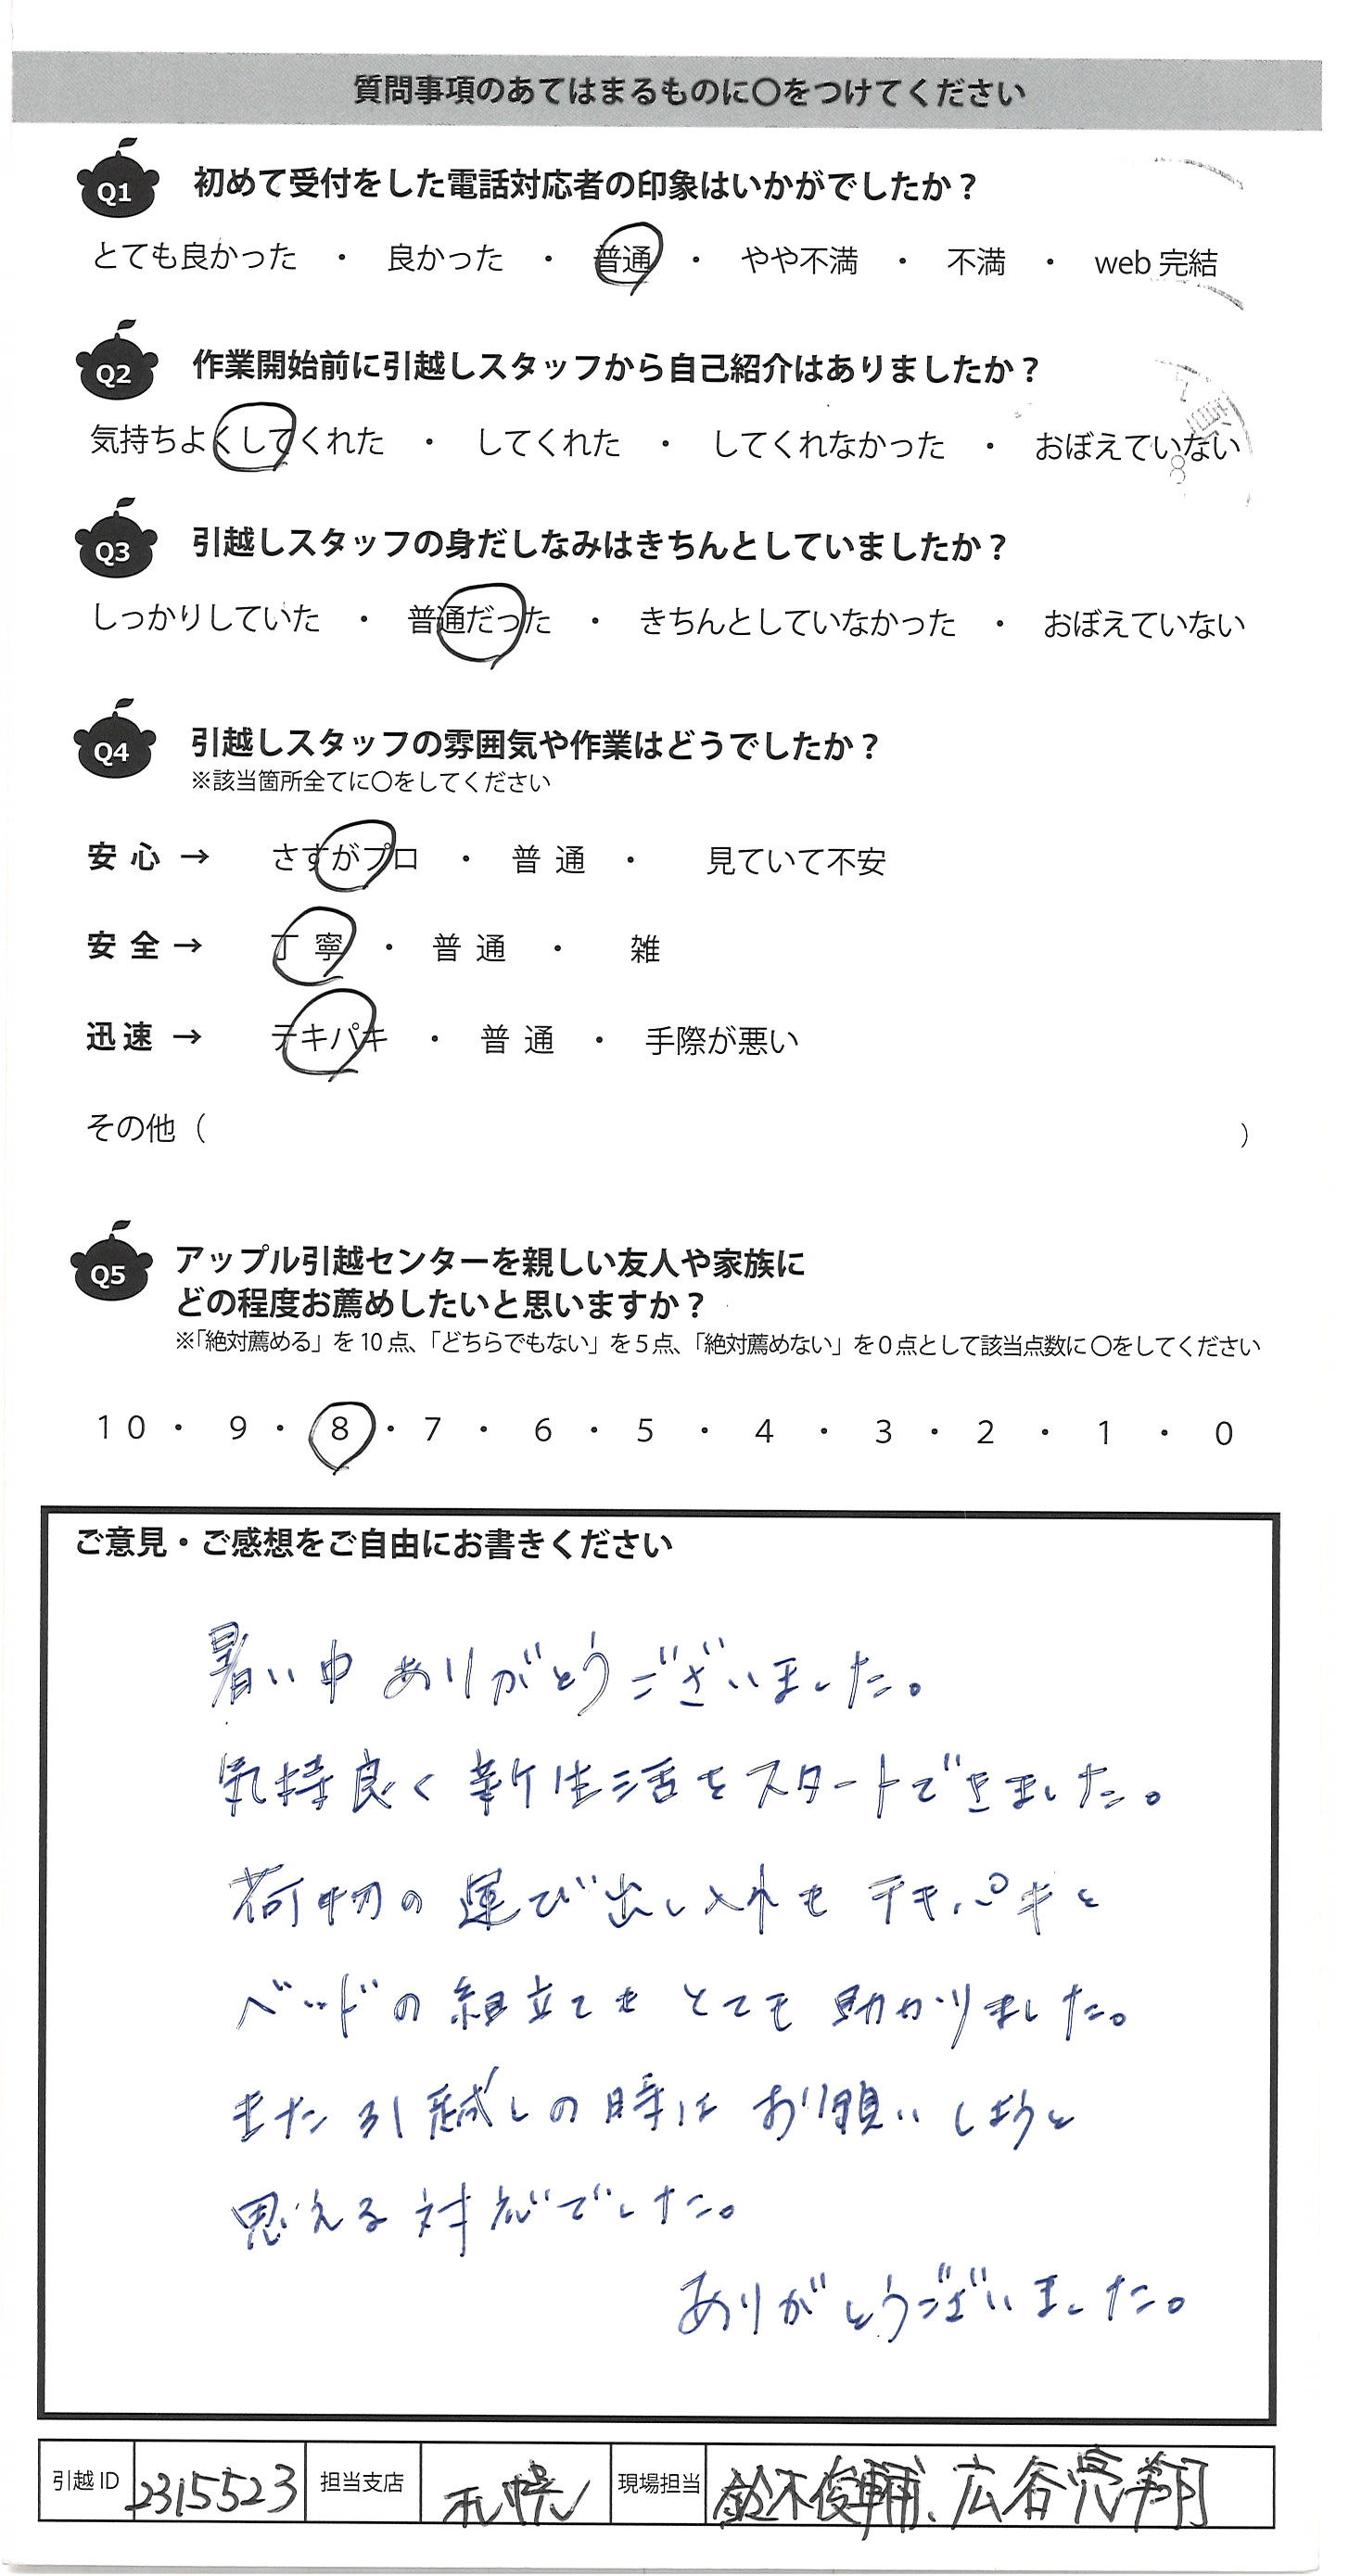 質問事項のあてはまるものに〇をつけてください
Q1 初めて受付をした電話対応者の印象はいかがでしたか？
とても良かった ・ 良かった ・ 普通 ・ やや不満 ・ 不満 ・ web 完結
Q2 作業開始前に引越しスタッフから自己紹介はありましたか？
気持ちよくしてくれた ・ してくれた ・ してくれなかった ・ おぼえていない
Q3 引越しスタッフの身だしなみはきちんとしていましたか？
しっかりしていた ・ 普通だった ・ きちんとしていなかった ・ おぼえていない
Q4 引越しスタッフの雰囲気や作業はどうでしたか？
※該当箇所全てに〇をしてください
安心 → さすがプロ ・ 普通 ・ 見ていて不安
安全 → 丁寧 ・ 普通 ・ 雑
迅速 → テキパキ ・ 普通 ・ 手際が悪い
その他（ ）
Q5 アップル引越センターを親しい友人や家族に
どの程度お薦めしたいと思いますか？
※「絶対薦める」を10点、「どちらでもない」を5点、「絶対薦めない」を0点として該当点数に〇をしてください
10 ・ 9 ・ 8 ・ 7 ・ 6 ・ 5 ・ 4 ・ 3 ・ 2 ・ 1 ・ 0
ご意見・ご感想をご自由にお書きください
暑い中 ありがとうございました。
気持良く新生活をスタートできました。
荷物の運び出し入れも テキパキと
ベッドの組立ても とても 助かりました。
また引越しの時は お願いしようと
思える対応でした。
ありがとうございました。
引越ID 2315523 担当支店 札幌 現場担当 鈴木俊輔、広谷亮翔